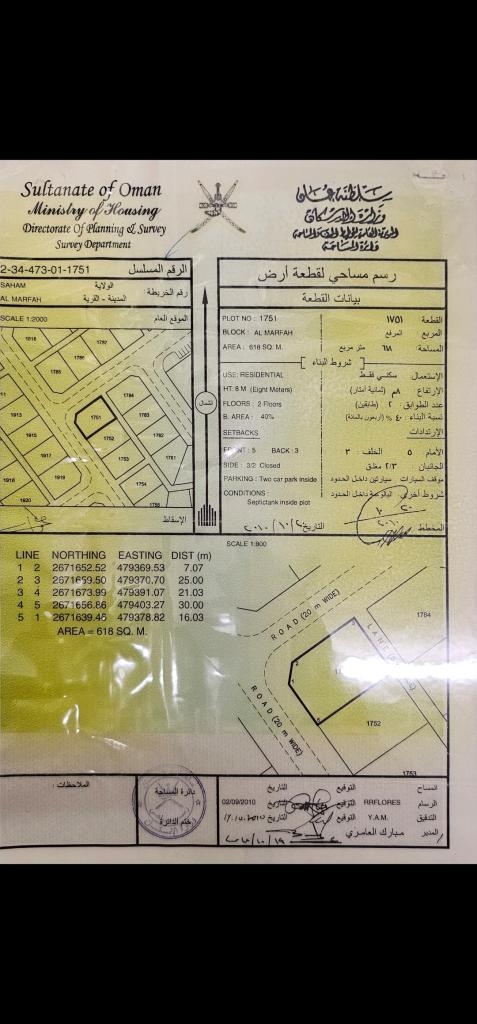 Sultanate of Oman
Ministry of Housing
Directorate Of Planning & Survey
Survey Department
سلطنة عمان
وزارة الإسكان
دائرة المساحة
2-34-473-01-1751 الرقم المسلسل
SAHAM الولاية
AL MARFAH المدينة - القرية
رقم الخريطة :
SCALE 1:2000 الموقع العام
1818
1785
1786
792
1784
1751
1913
1783
1752
1915
1762
1917
1753
1918
1919
1754
1920
1755
الشمال
الإسقاط
رسم مساحي لقطعة أرض
بيانات القطعة
PLOT NO : 1751 القطعة ١٧٥١
BLOCK : AL MARFAH المربع المرفع
AREA : 618 SQ. M. المساحة: ٦١٨ متر مربع
شروط البناء
USE: RESIDENTIAL الإستعمال: سكني فقط
HT: 8 M (Eight Meters) الإرتفاع : ٨م (ثمانية أمتار)
FLOORS : 2 Floors عدد الطوابق: ٢ (طابقين)
B. AREA : 40% نسبة البناء : ٤٠٪ (أربعون بالمائة)
SETBACKS الإرتدادات
FRONT : 5 BACK : 3 الأمام ٥ الخلف ٣
SIDE : 3/2 Closed الجانبان ٢/٣ مغلق
PARKING : Two car park inside موقف السيارات سيارتين داخل الحدود
CONDITIONS : شروط أخرى البالوعة داخل الحدود
Septictank inside plot
المخطط
التاريخ
SCALE 1:800
LINE NORTHING EASTING DIST (m)
1 2 2671652.52 479369.53 7.07
2 3 2671659.50 479370.70 25.00
3 4 2671673.99 479391.07 21.03
4 5 2671656.86 479403.27 30.00
5 1 2671639.46 479378.82 16.03
AREA = 618 SQ. M.
ROAD (20 m WIDE)
1764
LANE
2
1
ROAD (20 m WIDE)
1752
1753
الملاحظات :
دائرة المساحة
ختم الدائرة
المساح التوقيع التاريخ
الرسام RRFLORES التوقيع التاريخ 02/09/2010
التدقيق Y.A.M. التوقيع التاريخ
المدير مبارك العامري